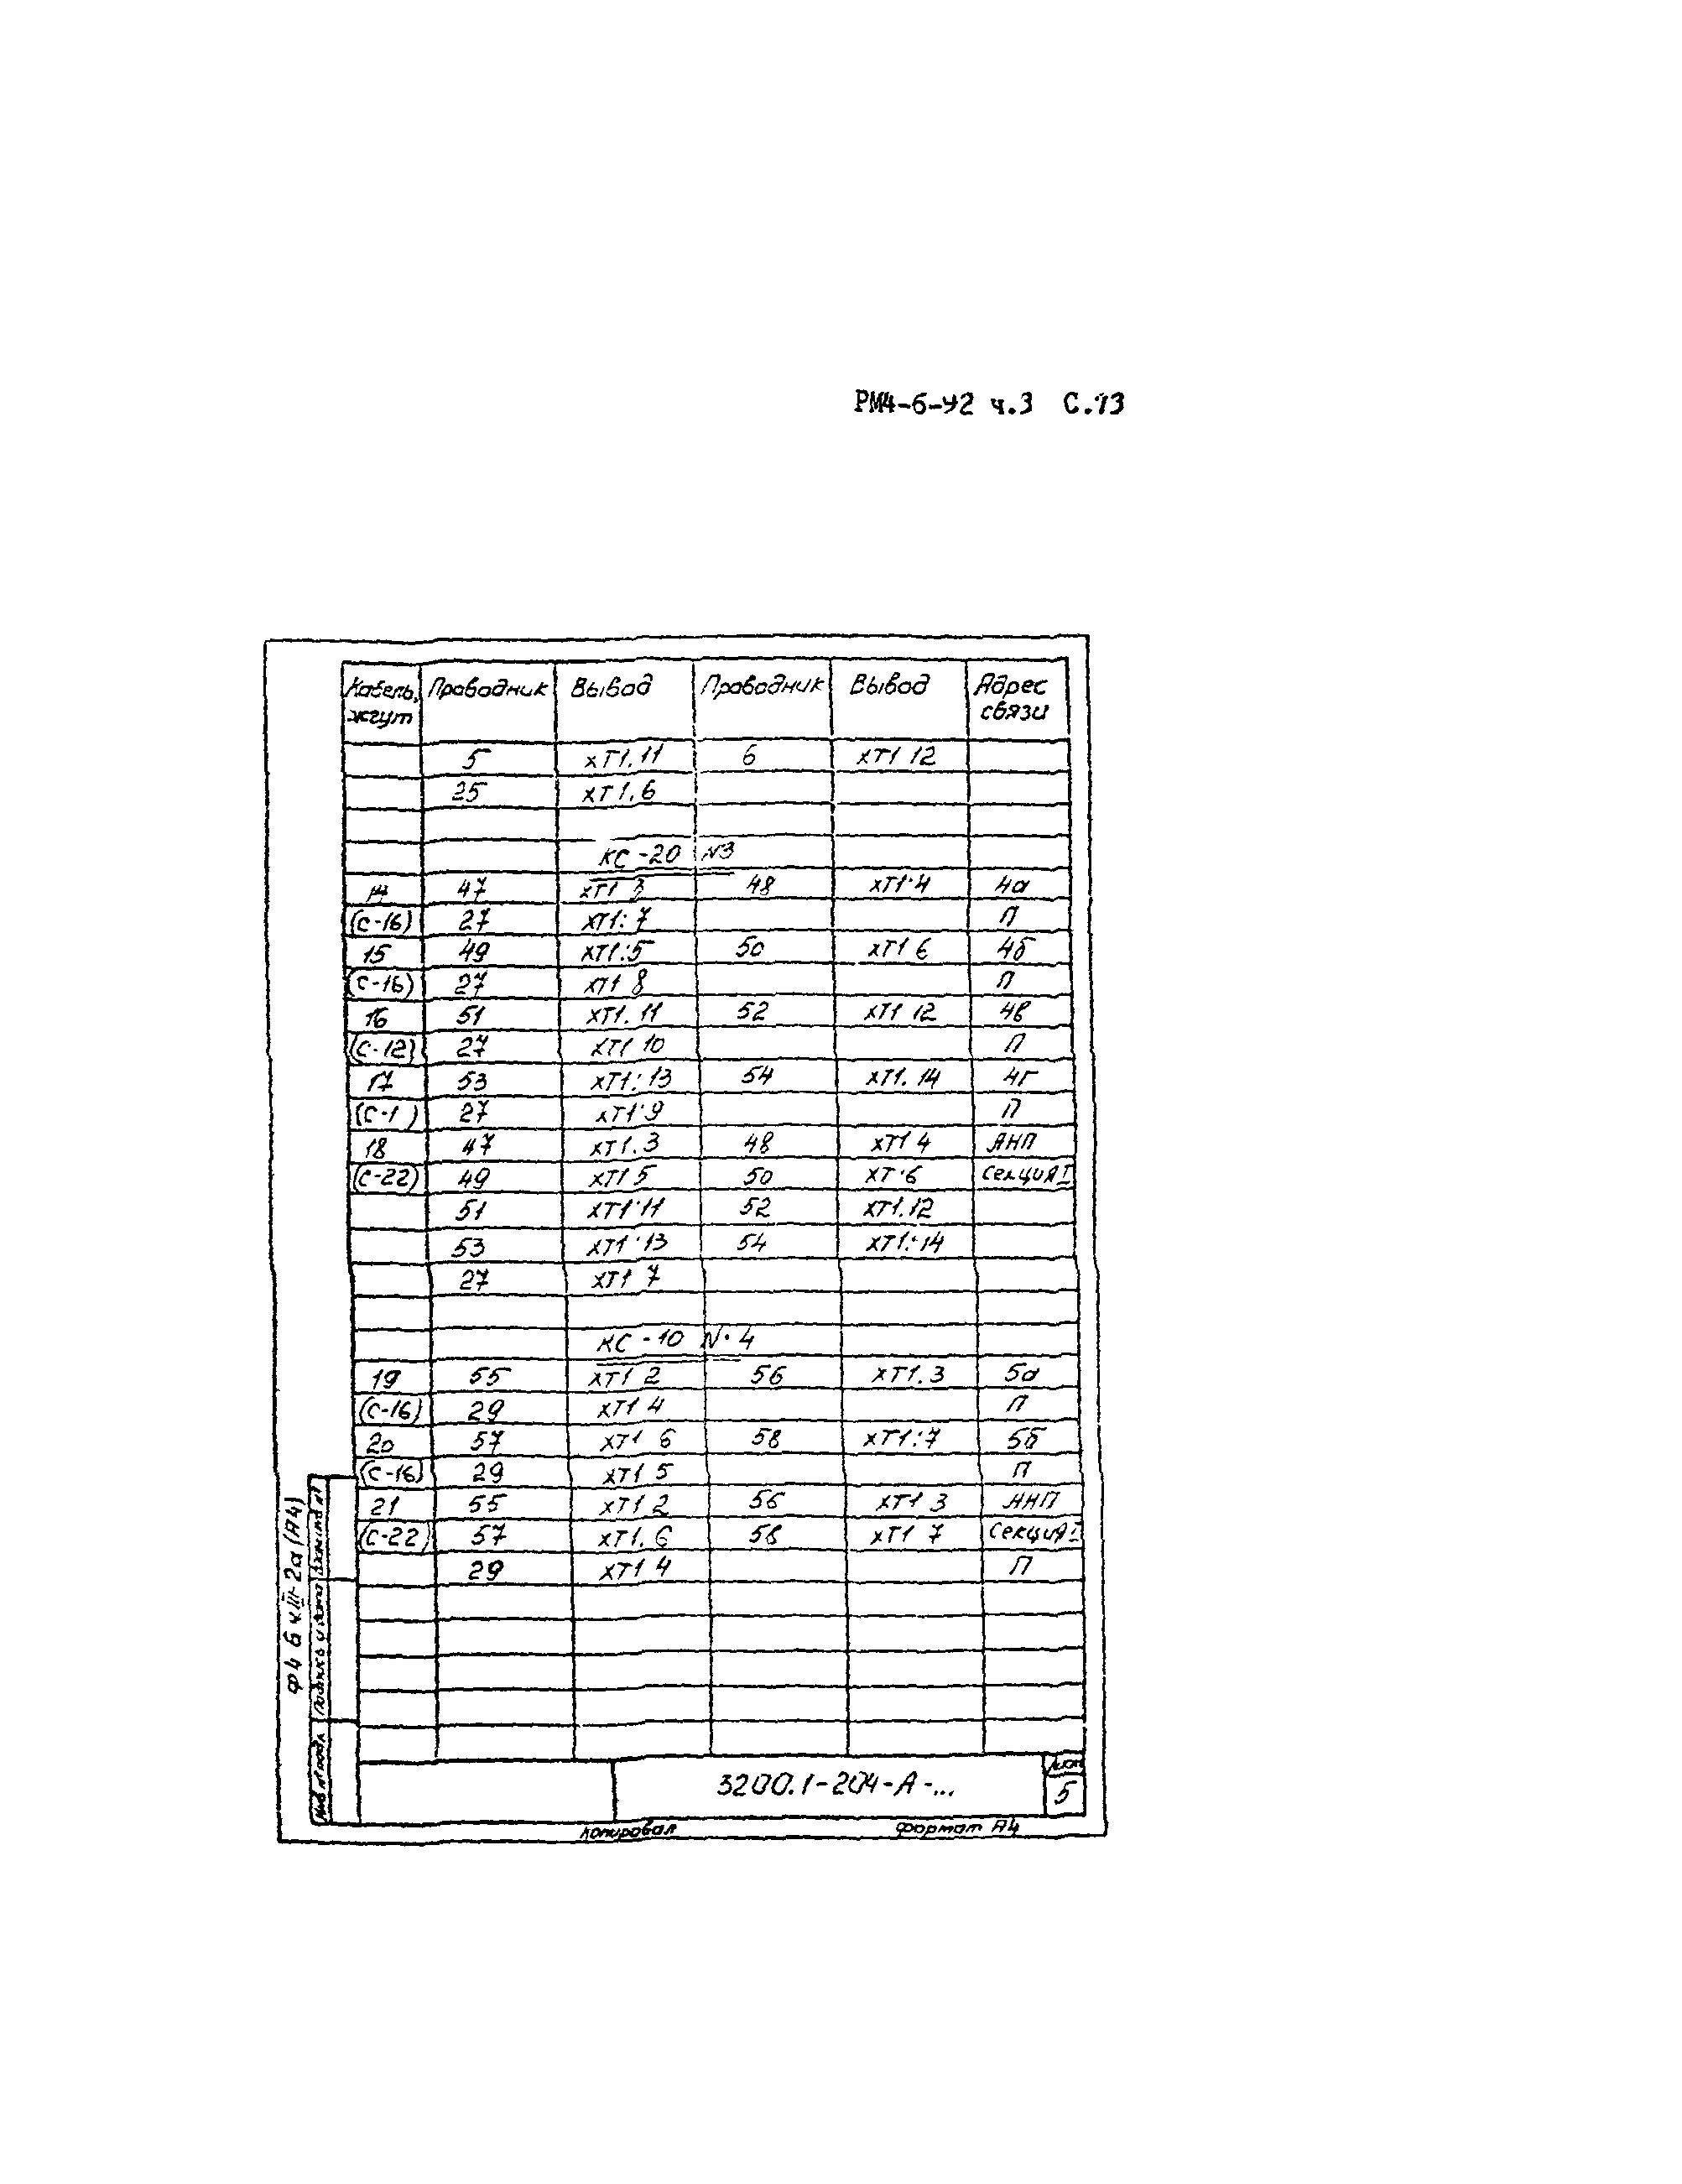 РМ4-6-92 ч.3 С.73
Кабель, жгут Проводник Вывод Проводник Вывод Адрес связи
5 хТ1.11 6 хТ1 12
25 хТ1.6
КС-20 N3
14 47 хТ1 3 48 хТ1:4 4а
(С-16) 27 хТ1:7 П
15 49 хТ1:5 50 хТ1 6 4б
(С-16) 27 хТ1 8 П
16 51 хТ1.11 52 хТ1 12 4в
(С-12) 27 хТ1 10 П
17 53 хТ1:13 54 хТ1.14 4г
(С-1 ) 27 хТ1:9 П
18 47 хТ1.3 48 хТ1 4 АНП
(С-22) 49 хТ1 5 50 хТ:6 секция I
51 хТ1:11 52 хТ1.12
53 хТ1:13 54 хТ1:14
27 хТ1 7
КС-10 N·4
19 55 хТ1 2 56 хТ1.3 5а
(С-16) 29 хТ1 4 П
20 57 хТ1 6 58 хТ1:7 5б
(С-16) 29 хТ1 5 П
21 55 хТ1 2 56 хТ1 3 АНП
(С-22) 57 хТ1.6 58 хТ1 7 секция I
29 хТ1 4 П
Ф4 6 ч III-2а (А4)
Инв № подл Подпись и дата Взам инв №
3200.1-204-А-...
Лист
5
Копировал Формат А4